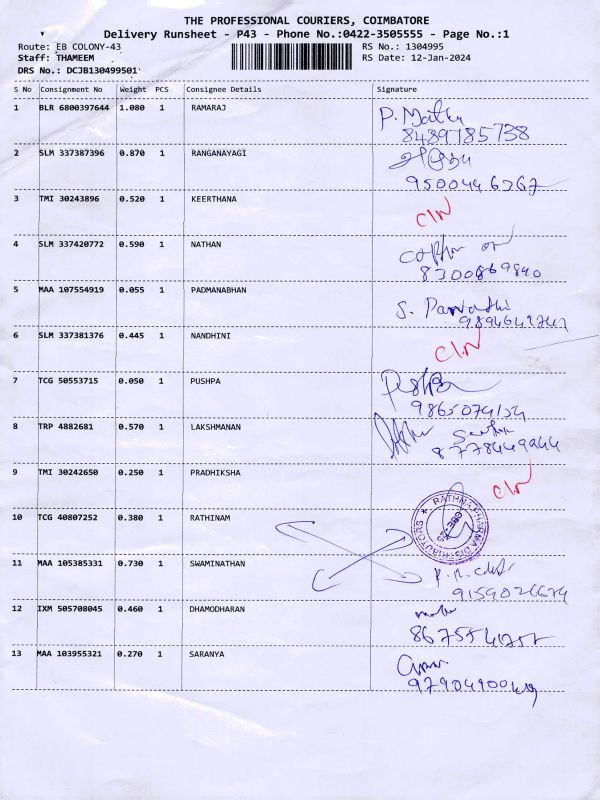 THE PROFESSIONAL COURIERS, COIMBATORE
Delivery Runsheet - P43 - Phone No.:0422-3505555 - Page No.:1
Route: EB COLONY-43 RS No.: 1304995
Staff: THAMEEM RS Date: 12-Jan-2024
DRS No.: DCJB130499501
S No Consignment No Weight PCS Consignee Details Signature
1 BLR 6800397644 1.080 1 RAMARAJ
8489785738
2 SLM 337387396 0.870 1 RANGANAYAGI
9500446367
3 TMI 30243896 0.520 1 KEERTHANA
4 SLM 337420772 0.590 1 NATHAN
8300869840
5 MAA 107554919 0.055 1 PADMANABHAN
6 SLM 337381376 0.445 1 NANDHINI
7 TCG 50553715 0.050 1 PUSHPA
8 TRP 4882681 0.570 1 LAKSHMANAN
9 TMI 30242650 0.250 1 PRADHIKSHA
10 TCG 40807252 0.380 1 RATHINAM
RATHNA PHARMA DISTRIBUTORS
CBE
11 MAA 105385331 0.730 1 SWAMINATHAN
12 IXM 505708045 0.460 1 DHAMODHARAN
13 MAA 103955321 0.270 1 SARANYA